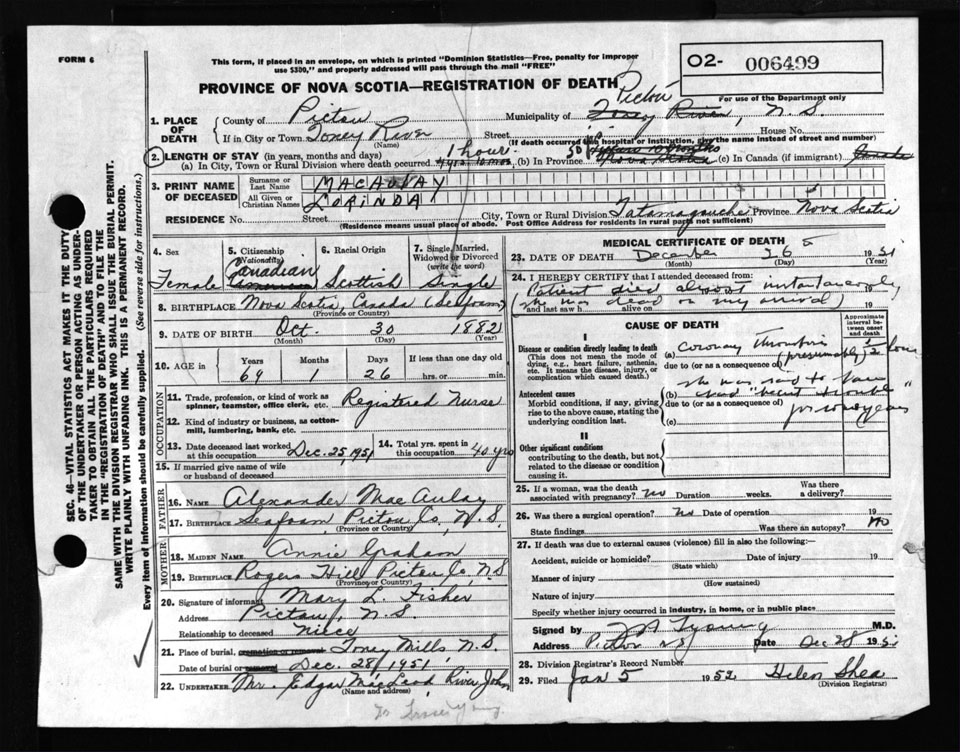 FORM 6
This form, if placed in an envelope, on which is printed "Dominion Statistics—Free, penalty for improper
use $300," and properly addressed will pass through the mail "FREE"
O2- 006499
PROVINCE OF NOVA SCOTIA—REGISTRATION OF DEATH
For use of the Department only
Pictou
1. PLACE OF DEATH
County of Pictou
Municipality of Toney River, N.S.
If in City or Town Toney River
(Name)
Street
House No.
(If death occurred in a hospital or institution, give the name instead of street and number)
2. LENGTH OF STAY (in years, months and days)
(a) In City, Town or Rural Division where death occurred 1 hour
(b) In Province
Nova Scotia
(c) In Canada (if immigrant) Canada
3. PRINT NAME OF DECEASED
Surname or Last Name MACAULAY
All Given or Christian Names LORINDA
RESIDENCE No. Street
City, Town or Rural Division Tatamagouche Province Nova Scotia
(Residence means usual place of abode. Post Office Address for residents in rural parts not sufficient)
4. Sex
Female
5. Citizenship (Nationality)
Canadian
6. Racial Origin
Scottish
7. Single, Married, Widowed or Divorced (write the word)
Single
8. BIRTHPLACE Nova Scotia, Canada (Seafoam)
(Province or Country)
9. DATE OF BIRTH Oct. 30 1882
(Month) (Day) (Year)
10. AGE in
Years Months Days If less than one day old
69 1 26 hrs. or min.
OCCUPATION
11. Trade, profession, or kind of work as spinner, teamster, office clerk, etc. Registered Nurse
12. Kind of industry or business, as cotton-mill, lumbering, bank, etc.
13. Date deceased last worked at this occupation Dec. 25, 1951
14. Total yrs. spent in this occupation 40 yrs
15. If married give name of wife or husband of deceased
FATHER
16. NAME Alexander MacAulay
17. BIRTHPLACE Seafoam Pictou Co. N.S.
(Province or Country)
MOTHER
18. MAIDEN NAME Annie Graham
19. BIRTHPLACE Rogers Hill Pictou Co. N.S
(Province or Country)
20. Signature of informant Mary L. Fisher
Address Pictou, N.S.
Relationship to deceased Niece
21. Place of burial, cremation or removal Toney Mills N.S.
Date of burial or removal Dec. 28, 1951
22. UNDERTAKER Mr. Edgar MacLeod River John
(Name and address)
MEDICAL CERTIFICATE OF DEATH
23. DATE OF DEATH December 26 1951
(Month) (Day) (Year)
24. I HEREBY CERTIFY that I attended deceased from:
Patient died almost instantaneously 19
and last saw h alive on 19
(she was dead on my arrival)
CAUSE OF DEATH
Approximate interval between onset and death
I
Disease or condition directly leading to death
(This does not mean the mode of dying, e.g., heart failure, asthenia, etc. It means the disease, injury, or complication which caused death.)
(a) coronary thrombosis
due to (or as a consequence of) (presumably) 1/2 hour
Antecedent causes
Morbid conditions, if any, giving rise to the above cause, stating the underlying condition last.
she was said to have
(b) had "heart trouble"
due to (or as a consequence of)
for
years
(c)
II
Other significant conditions
contributing to the death, but not related to the disease or condition causing it.
25. If a woman, was the death associated with pregnancy? no Duration weeks. Was there a delivery?
26. Was there a surgical operation? no Date of operation 19
State findings Was there an autopsy? no
27. If death was due to external causes (violence) fill in also the following:—
Accident, suicide or homicide? Date of injury 19
(State which)
Manner of injury
(How sustained)
Nature of injury
Specify whether injury occurred in industry, in home, or in public place
Signed by Young M.D.
Address Pictou NS Date Dec 28 1951
28. Division Registrar's Record Number
29. Filed Jan 5 1952 Helen Shea
(Division Registrar)
SEC. 46—VITAL STATISTICS ACT MAKES IT THE DUTY
OF THE UNDERTAKER OR PERSON ACTING AS UNDER-
TAKER TO OBTAIN ALL THE PARTICULARS REQUIRED
IN THE "REGISTRATION OF DEATH" AND TO FILE THE
SAME WITH THE DIVISION REGISTRAR WHO SHALL ISSUE THE BURIAL PERMIT.
WRITE PLAINLY WITH UNFADING INK. THIS IS A PERMANENT RECORD.
Every item of information should be carefully supplied. (See reverse side for instructions.)